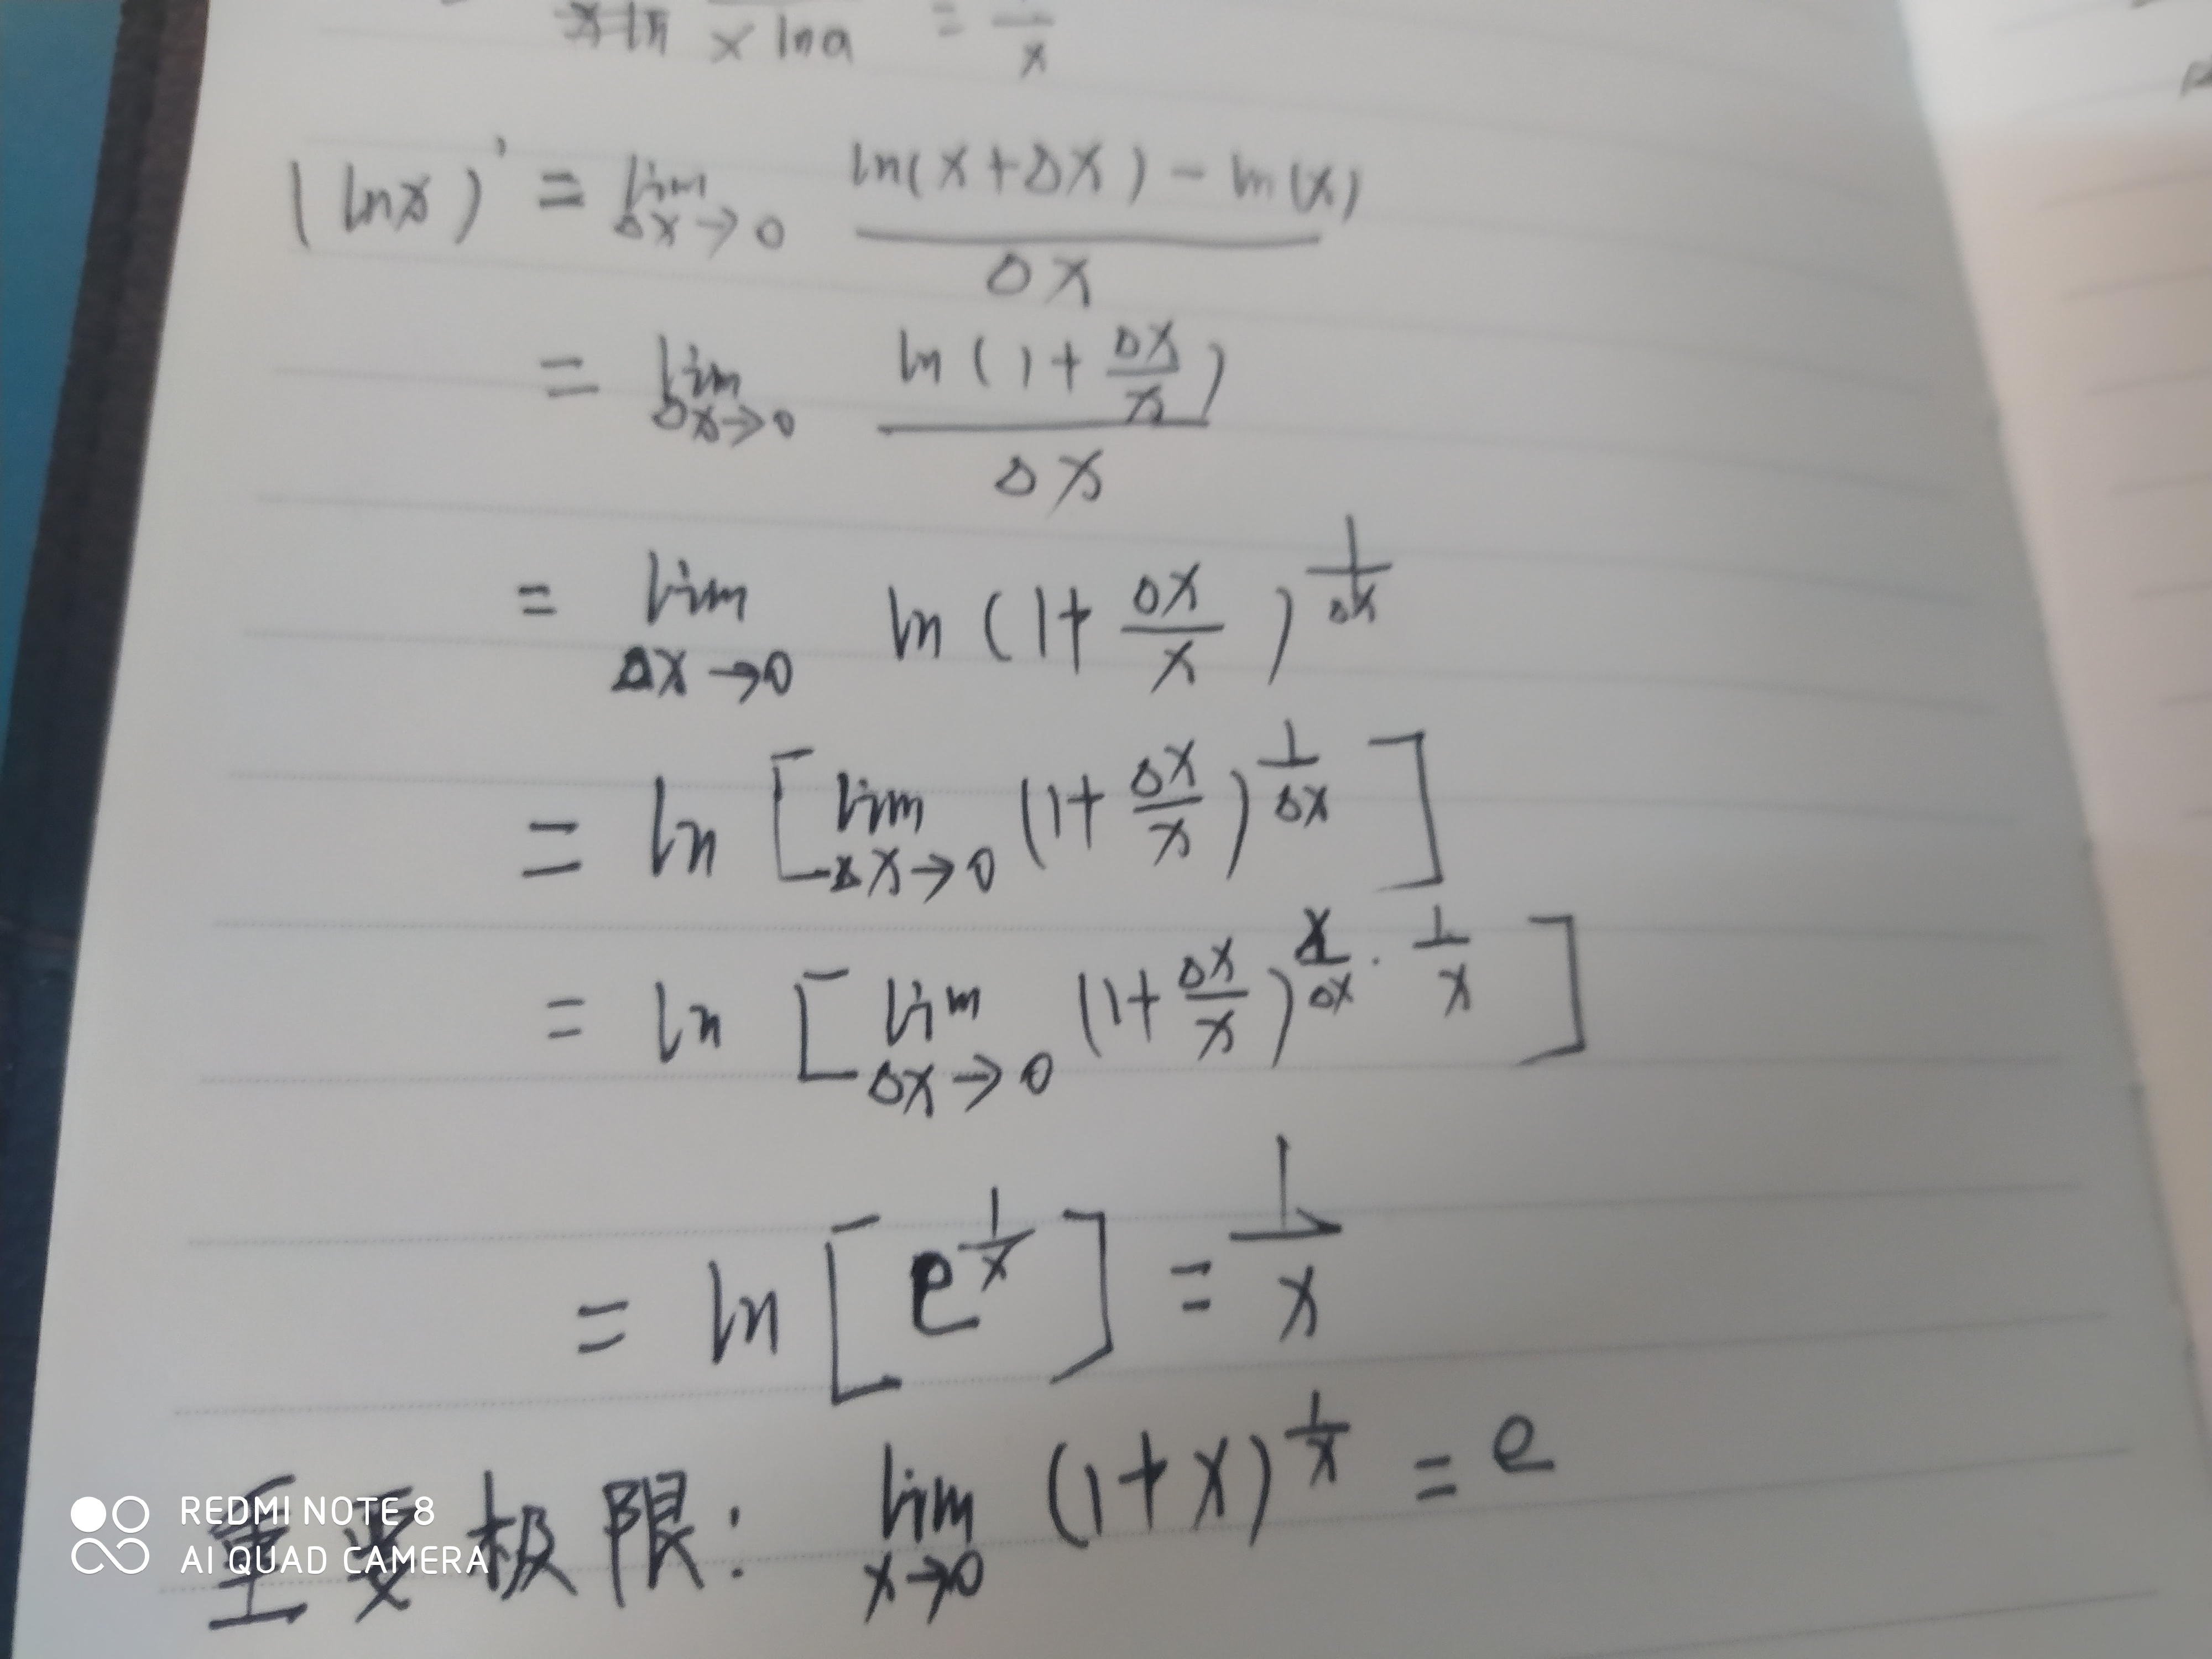 x ln a = 1/x
(lnx)' = lim Δx→0 (ln(x+Δx) - ln(x))/Δx
= lim Δx→0 ln(1+Δx/x)/Δx
= lim Δx→0 ln(1+Δx/x)^(1/Δx)
= ln [lim Δx→0 (1+Δx/x)^(1/Δx)]
= ln [lim Δx→0 (1+Δx/x)^(x/Δx · 1/x)]
= ln [e^(1/x)] = 1/x
重要极限: lim x→0 (1+x)^(1/x) = e
REDMI NOTE 8
AI QUAD CAMERA